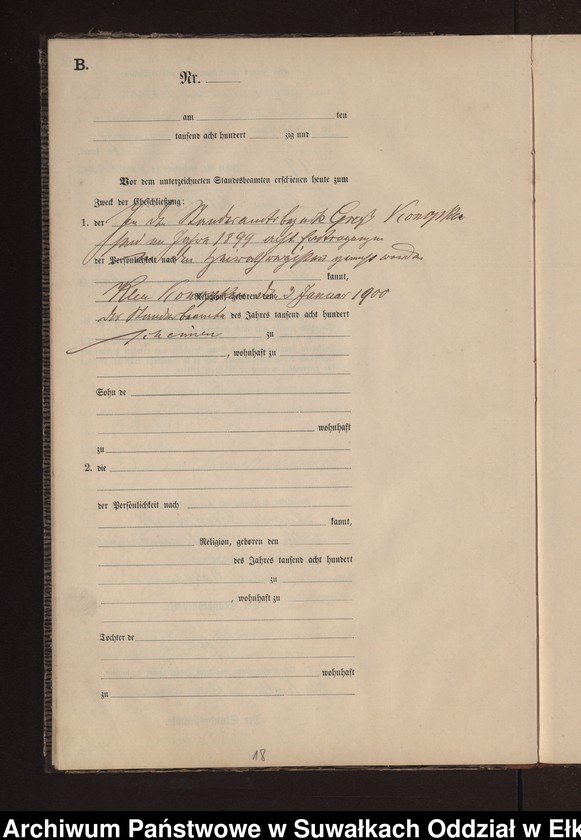 B.
Nr.
am ten
tausend acht hundert zig und
Vor dem unterzeichneten Standesbeamten erschienen heute zum
Zweck der Eheschließung:
1. der
In dem Standesamtsbezirk Groß Konopken
sind im Jahre 1899 acht
der Persönlichkeit nach
im Heiratsregister gemacht worden
kannt,
Klein Konopken den 3 Januar 1900
Religion, geboren den
Der Standesbeamte
des Jahres tausend acht hundert
zu
, wohnhaft zu
Sohn de
wohnhaft
zu
2. die
der Persönlichkeit nach
kannt,
Religion, geboren den
des Jahres tausend acht hundert
zu
, wohnhaft zu
Tochter de
wohnhaft
zu
18
Archiwum Państwowe w Suwałkach Oddział w Ełk